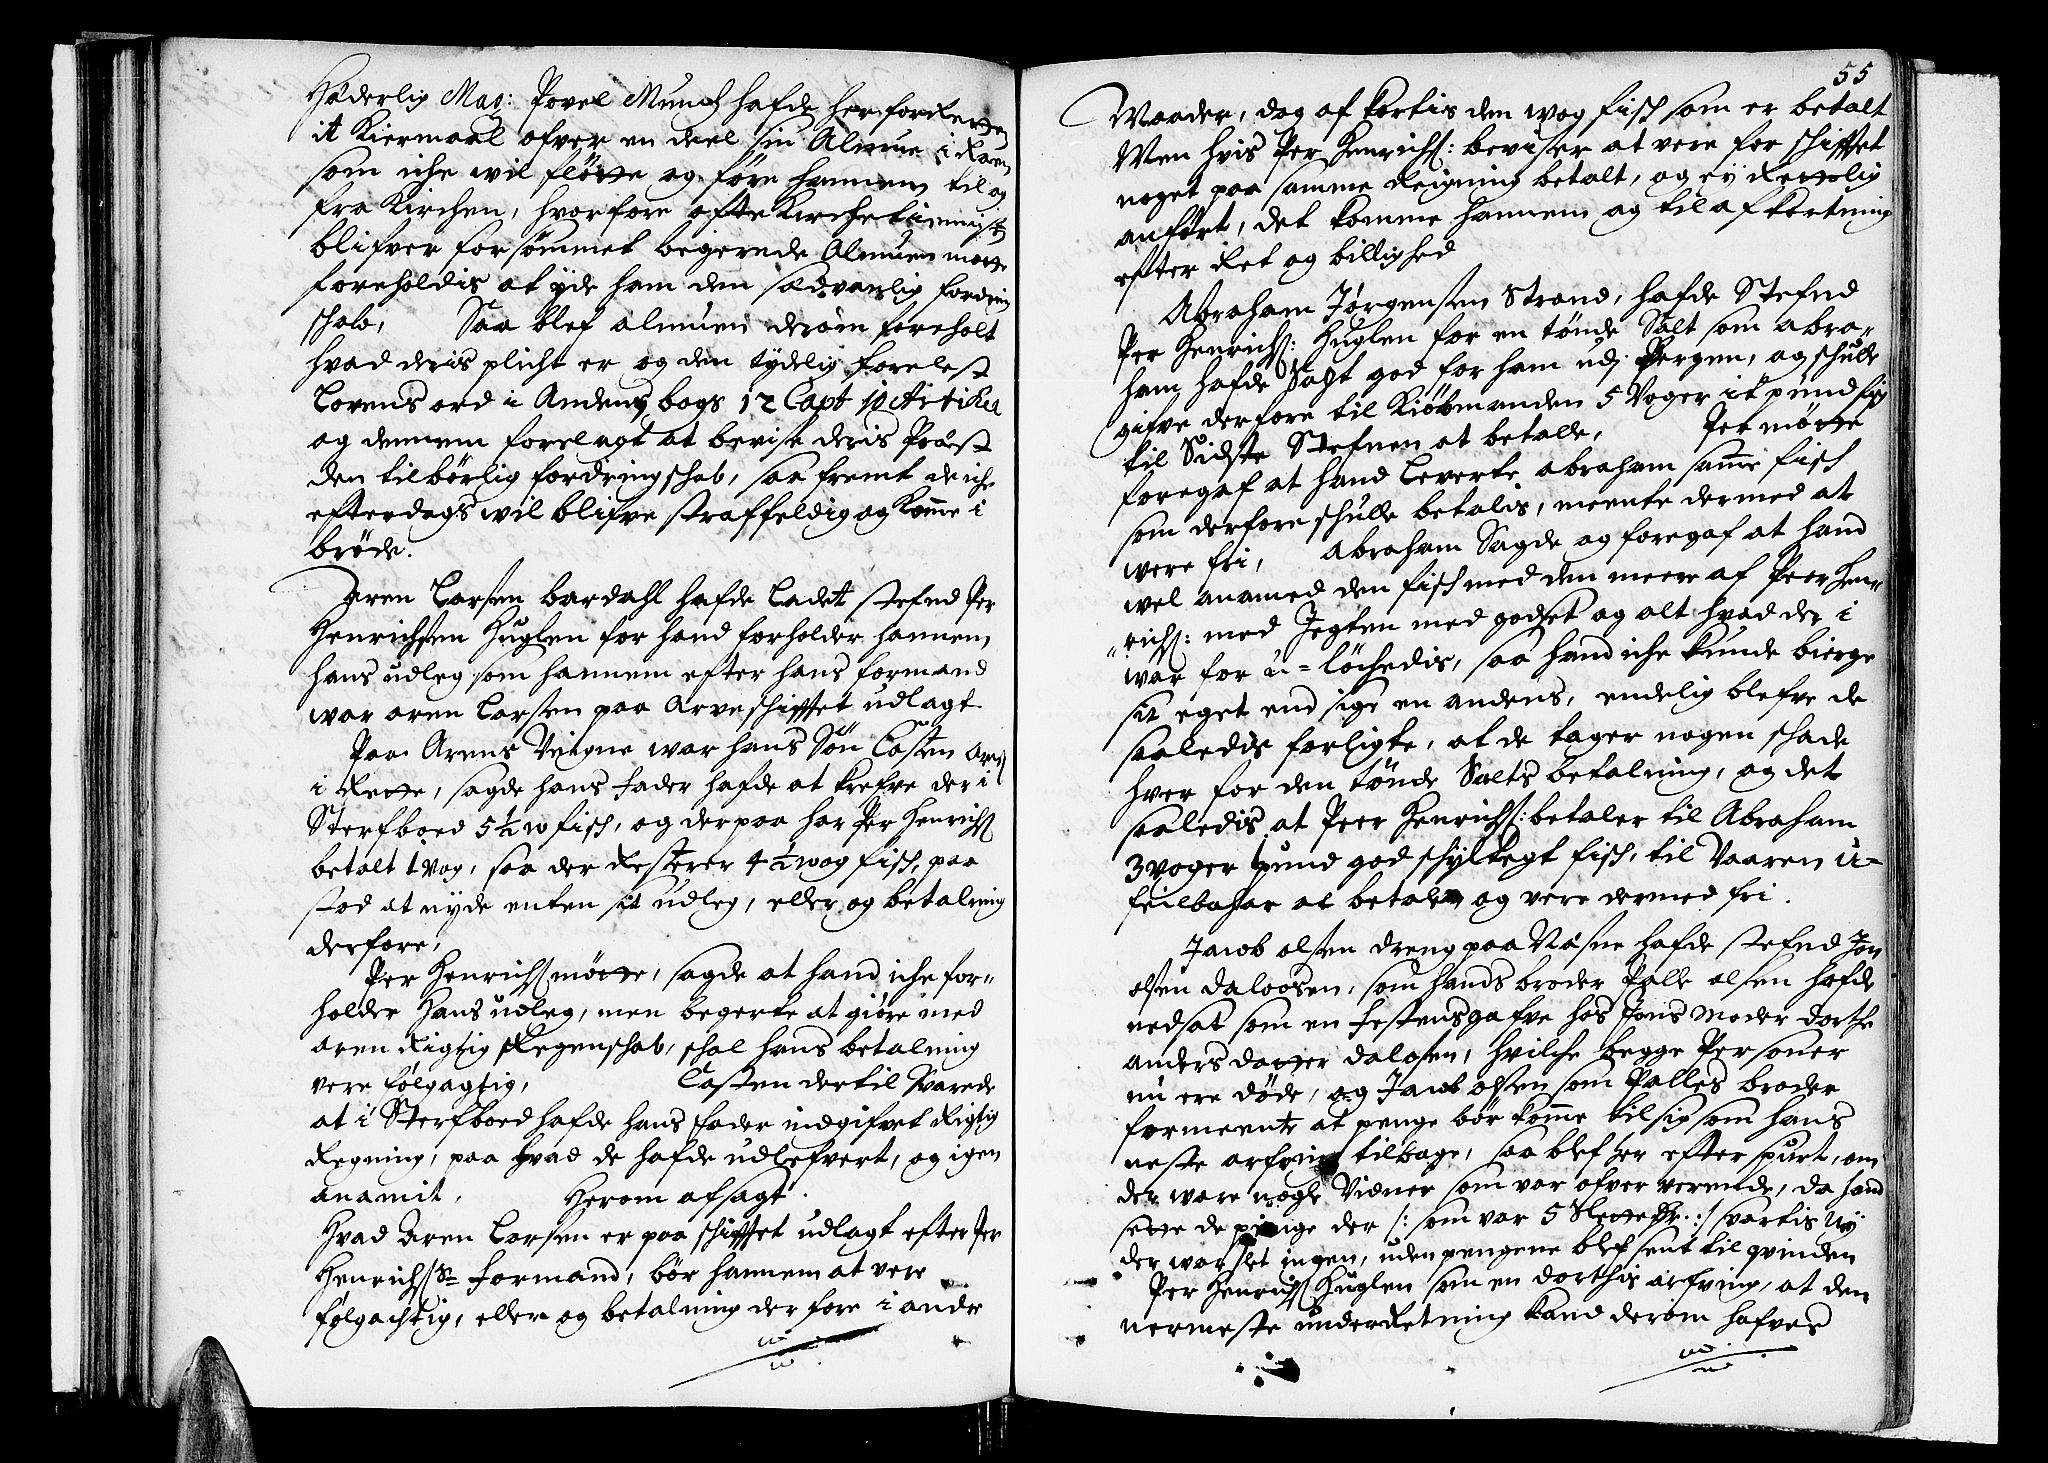 Häderlig Mag: Povel Munch hafde her for Retten
it Kiermaal ofver en deel sin Almue i Ranen
som iche wil fløtte og føre hannem til og
fra Kirchen, hvorfore ofte Kirchetienniste
blifver forsømmet begierende Almuen motte
foreholdis at ÿde ham den sædvanlig fordring
schab, Saa blef almuen derom foreholt
hvad deris plicht er og den tÿdelig forelest
Lovens ord i Andens bogs 12 Capt 10 Artikel
og dennem forelagt at bevise deris Präst
den tilbørlig fordringschab, saa fremt de iche
efterdags wil blifve straffeldig og komme i
brøde.
Aren Larsen bardahl hafde Ladet stefnd Per
Henrichsen Huglen for hand forholder hannem,
hans udleg som hannem efter hans formand
war aren Larsen paa Arveschifftet udlagt
Paa Arens Veigne war hans Søn Lasten Ars:
i Rette, sagde hans Fader hafde at krefve der i
Sterfboed 5½ w fisch, og derpaa har Per Henrichs:
betalt 1 Vog, saa der Resterer 4½ wog fisch, paa
stod at nÿde enten sit udleg, eller og betalning
derfore,
Per Henrichs: møtte, sagde at hand iche for-
holder Hans udleg, men begerte at giøre med
aren Rigtig Regenschab, schal hans betalning
vere følgagtig, Lasten dertil Svarede
at i Sterfboed hafde hans fader indgifvet Rigtig
Regning, paa hvad de hafde udlefvert, og igen
anamit. Herom afsagt.
Hvad Aren Larsen er paa schifftet udlagt efter Per
Henrichs: S: Formand, bør hannem at vere
følgachtig, eller og betalning der fore i andre
55
Waader, dog af kortis den wog fisch som er betalt
Men hvis Per Henrichs: beviser at vere for schifftet
noget paa samme Reigning betalt, og eÿ Rettelig
anført, det komme hannem og til afkortning
efter Ret og billighed
Abraham Jørgensen Strand, hafde Stefnd
Per Henrichs: Huglen for en tønde Salt som abra-
ham hafde Sagt god for ham udj Bergen, og schulle
gifve derfore til Kiøbmanden 5 Voger it pund fisch
til Sidste Stefnen at betalle, Per møtte
foregaf at hand Leverte abraham samme fisch
som derfore schulle betalis, meente dermed at
were fri, abraham Sagde og foregaf at hand
wel anamed den fisch med den meere af Peer Hen-
richs: med Jegten med godset og alt hvad der i
wär for u=löchedis, saa hand iche kunde bierge
sit eget end sige en andens, endelig blefve de
saaledis forligte, at de tager nogen schade
hver for den tønde Salts betalning, og det
saaledis at Peer Henrichs: betaler til Abraham
3 voger 1 pund god schÿltegt fisch, til Vaaren u=
feilbahar at betale og vere dermed fri.
Jacob olsen dreng paa Näsne hafde stefnd Jon
olsen daloosen, som hands broder Palle olsen hafde
nedsat som en Festensgafve hos Jons Moder dorthe
anders datter dalosen, hvilche begge Personer
nu ere døde, og Jacob olsen som Palles broder
formeente at penge bør komme til sig som hans
neste arfving tilbage, saa blef her efter spurt, om
der ware nogle Vidner som var ofver verende, da hand
sette de penge der /: som var 5 Slette Dr: :/ svartis Nÿ
der war slet ingen, uden pengene blef sent til qvinden
Per Henrichs: Huglen som en dorthis arfving, at den
nermeste underRetning kand derom hafves